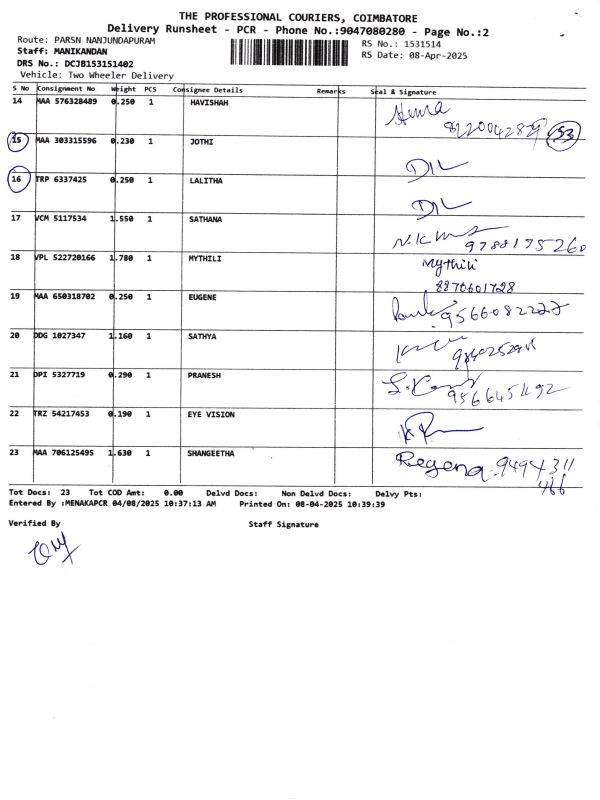 THE PROFESSIONAL COURIERS, COIMBATORE
Delivery Runsheet - PCR - Phone No.:9047080280 - Page No.:2
Route: PARSN NANJUNDAPURAM
RS No.: 1531514
Staff: MANIKANDAN
RS Date: 08-Apr-2025
DRS No.: DCJB153151402
Vehicle: Two Wheeler Delivery
S No Consignment No Weight PCS Consignee Details Remarks Seal & Signature
14 MAA 576328489 0.250 1 HAVISHAH
53
15 MAA 303315596 0.230 1 JOTHI
DIL
16 TRP 6337425 0.250 1 LALITHA
DIL
17 VCM 5117534 1.550 1 SATHANA
9788175260
18 VPL 522720166 1.780 1 MYTHILI Mythili
8870601728
19 MAA 650318702 0.250 1 EUGENE
9566082227
20 DDG 1027347 1.160 1 SATHYA
21 DPI 5327719 0.290 1 PRANESH
22 TRZ 54217453 0.190 1 EYE VISION
23 MAA 706125495 1.630 1 SHANGEETHA Regena 9494311
466
Tot Docs: 23 Tot COD Amt: 0.00 Delvd Docs: Non Delvd Docs: Delvy Pts:
Entered By :MENAKAPCR 04/08/2025 10:37:13 AM Printed On: 08-04-2025 10:39:39
Verified By Staff Signature